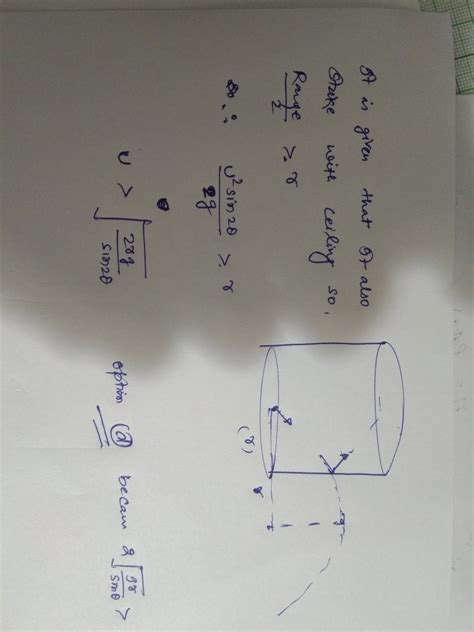 It is given that It also
strike with ceiling so,
Range/2 ≥ r
So ∴ u² sin2θ / 2g ≥ r
u > √(2rg / sin2θ)
(r)
r
option (d) becam 2√(gr / sinθ) >